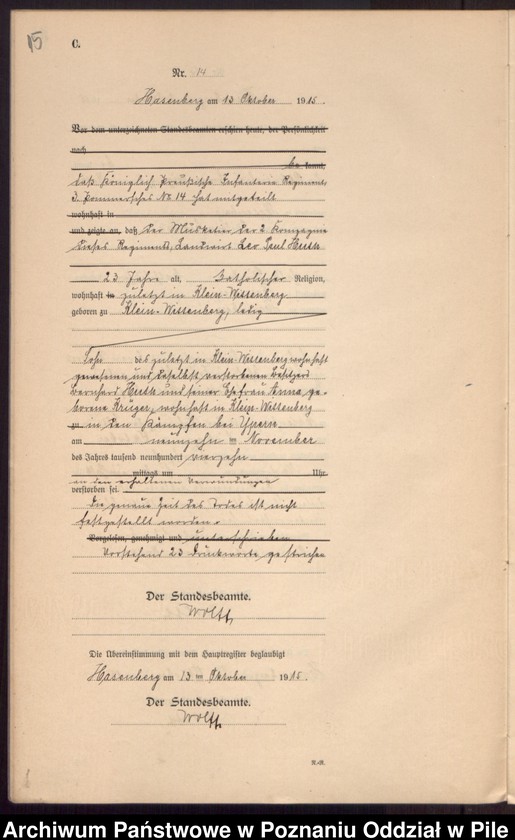 15
C.
Nr. 14
Hasenberg am 13 Oktober 1915.
Vor dem unterzeichneten Standesbeamten erschien heute, der Persönlichkeit
nach
kannt,
das Königlich Preußische Infanterie Regiment
3. Pommersches No 14 hat mitgeteilt
wohnhaft in
und zeigte an, daß der Musketier der 2 Kompagnie
dieses Regiments, Landwirt Leo Paul
23 Jahre alt, katholischer Religion,
wohnhaft in zuletzt in Klein-Wessenberg
geboren zu Klein-Wessenberg, ledig
Sohn des zuletzt in Klein-Wessenberg wohnhaft
gewesenen und daselbst verstorbenen Besitzers
Bernhard und seiner Ehefrau Anna ge-
borene Krüger, wohnhaft in Klein-Wessenberg
zu in den Kämpfen bei Ypern
am neunzehn ten November
des Jahres tausend neunhundert vierzehn
mittags um Uhr
an den erhaltenen Verwundungen
verstorben sei.
Die genaue Zeit des Todes ist nicht
festgestellt worden.
Vorgelesen, genehmigt und unterschrieben
Vorstehend 23 Druckworte gestrichen
Der Standesbeamte.
Wolff
Die Übereinstimmung mit dem Hauptregister beglaubigt
Hasenberg am 13 ten Oktober 1915.
Der Standesbeamte.
Wolff
Archiwum Państwowe w Poznaniu Oddział w Pile